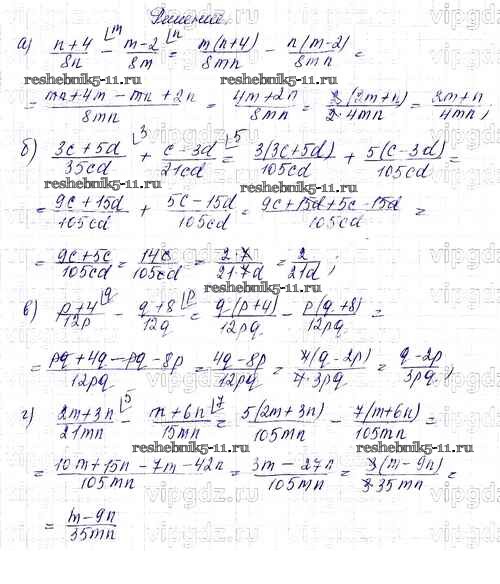 Решение.
а) n+4/8n - m-2/8m = m(n+4)/8mn - n(m-2)/8mn =
= mn+4m-mn+2n/8mn = 4m+2n/8mn = 2(2m+n)/2·4mn = 2m+n/4mn;
б) 3c+5d/35cd + c-3d/21cd = 3(3c+5d)/105cd + 5(c-3d)/105cd =
= 9c+15d/105cd + 5c-15d/105cd = 9c+15d+5c-15d/105cd =
= 9c+5c/105cd = 14c/105cd = 2·7/21·7d = 2/21d;
в) p+4/12p - q+8/12q = q(p+4)/12pq - p(q+8)/12pq =
= pq+4q-pq-8p/12pq = 4q-8p/12pq = 4(q-2p)/4·3pq = q-2p/3pq;
г) 2m+3n/21mn - m+6n/15mn = 5(2m+3n)/105mn - 7(m+6n)/105mn =
= 10m+15n-7m-42n/105mn = 3m-27n/105mn = 3(m-9n)/3·35mn =
= m-9n/35mn
reshebnik5-11.ru
vipgdz.ru